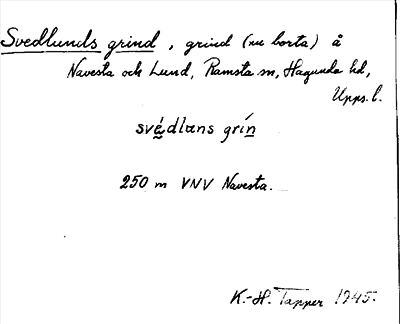 Svedlunds grind, grind (nu borta) å
Navesta och Lund, Ramsta sn, Hagunda hd,
Upps. l.
svédlans grín
250 m VNV Navesta.
K.-H. Tapper 1945.